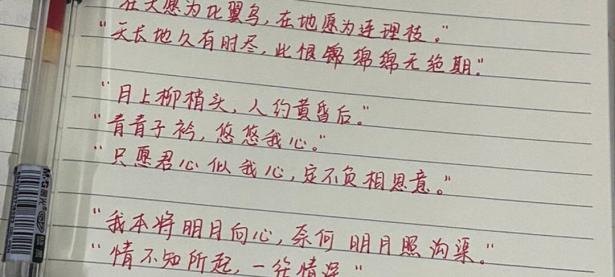 在天愿为比翼鸟,在地愿为连理枝。"
"天长地久有时尽,此恨锦绵绵无绝期."
"月上柳梢头,人约黄昏后."
"青青子衿,悠悠我心."
"只愿君心似我心,定不负相思意。"
"我本将明月向心,奈何明月照沟渠."
"情不知所起,一往情深"